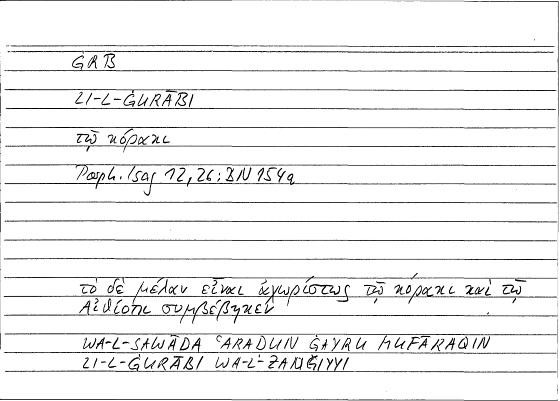 ĠRB
LI-L-ĠURĀBI
τῷ κόρακι
Porph. Isag 12,26: BN 154a
τὸ δὲ μέλαν εἶναι ἀχωρίστως τῷ κόρακι καὶ τῷ
Αἰθίοπι συμβέβηκεν
WA-L-SAWĀDA ʿARADUN ĠAYRU MUFĀRAQIN
LI-L-ĠURĀBI WA-L-ZANǦIYYI